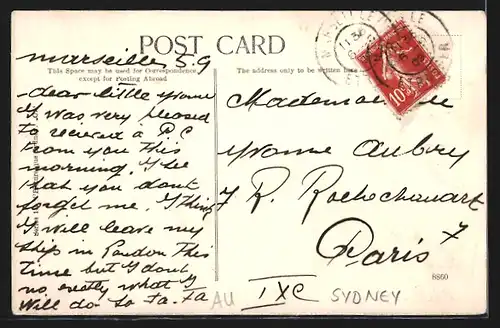 POST CARD
This Space may be used for Correspondence,
except for Posting Abroad
The address only to be written here
marseille 5.9
dear little Yvonne
I was very pleased
to recieved a P.C
from you this
morning. I see
that you dont
forget me. I think
I will leave my
ship in London this
time but I dont
no, exatly what I
will do so Ta. Ta
Mademoiselle
Yvonne Aubry
7 R. Rochechouart
Paris
IXe
AU
SYDNEY
8860
10c